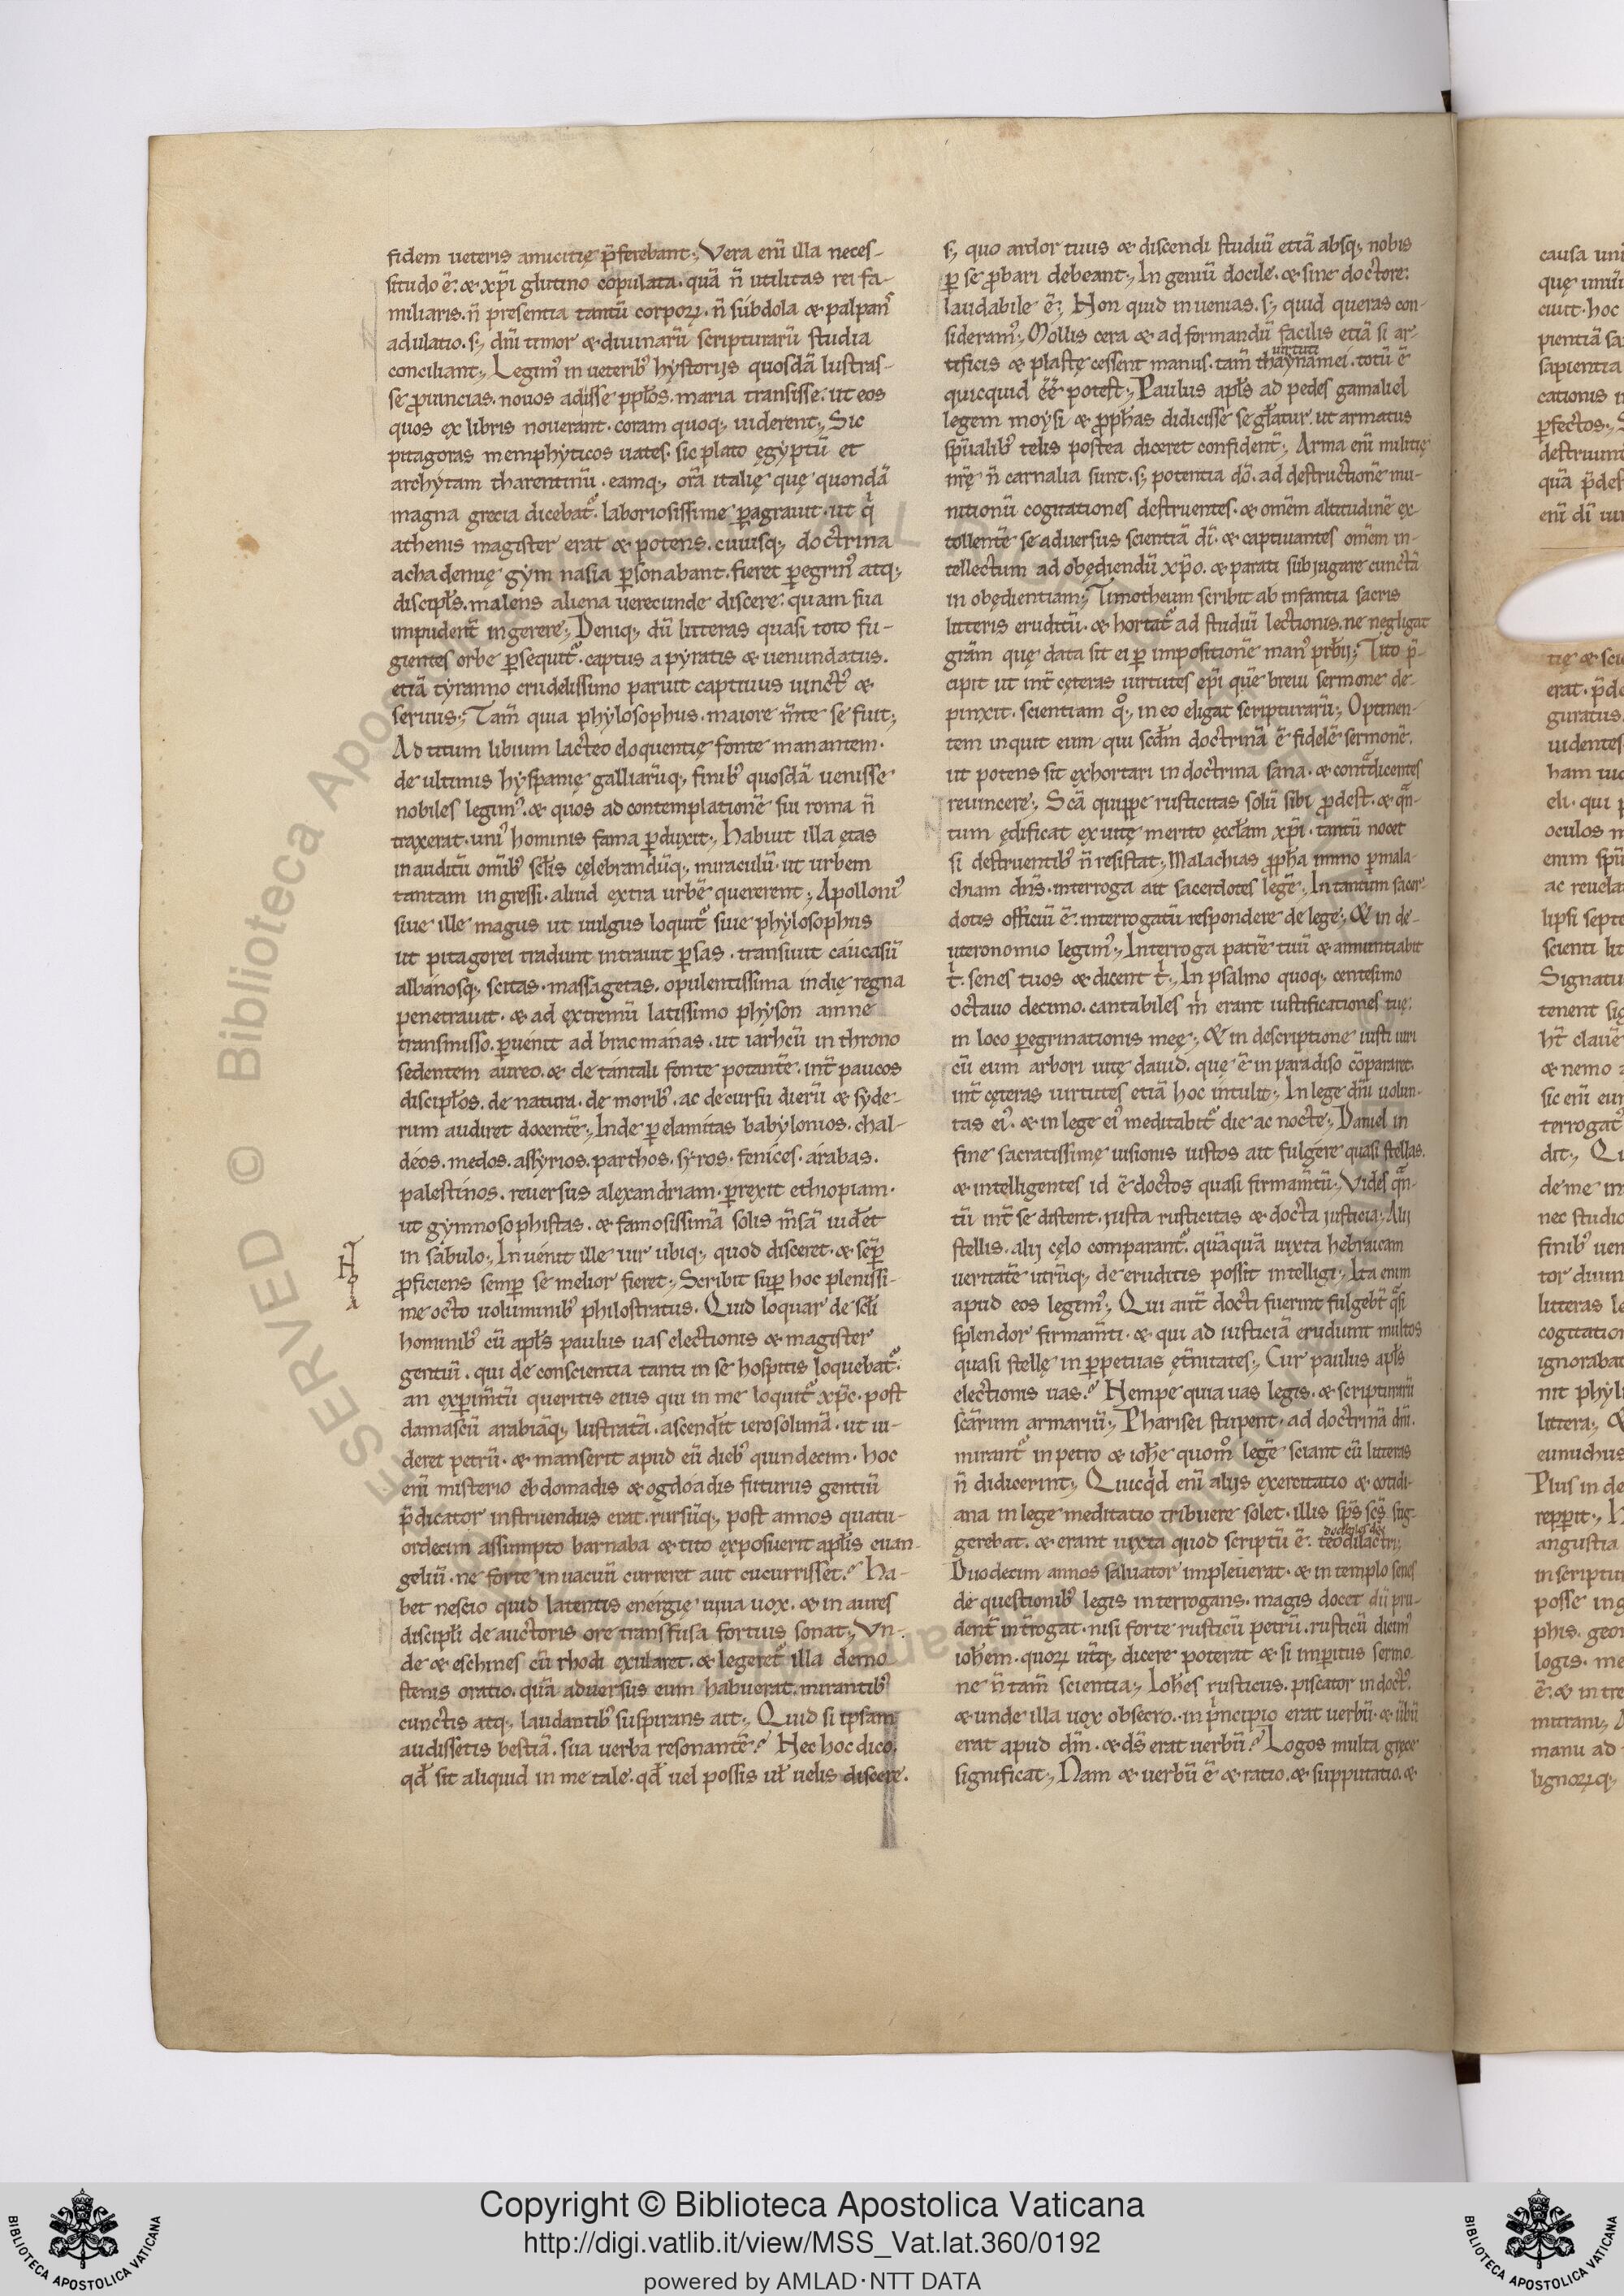 fidem ueteris amicitię p̄ferebant; Vera eni̅ illa neces-
situdo ē. & xp̄i glutino copulata. quā n̄ utilitas rei fa-
miliaris. n̄ presentia tantū corporꝝ. n̄ subdola & palpans
adulatio. s; dn̄i timor & diuinarū scripturarū studia
conciliant; Legim᾽ in ueterib᾽ hystorijs quosdā lustras-
se ꝓuincias. nouos adisse ppl̄os. maria transisse. ut eos
quos ex libris nouerant. coram quoq; uiderent; Sic
pitagoras memphyticos uates. sic plato ęgyptū et
archytam tharentinū. eamq; orā italię quę quondā
magna grecia dicebat᾽. laboriosissime ꝑagrauit. ut q̇
athenis magister erat & potens. cuiusq; doctrina
achademię gymnasia ꝑsonabant. fieret ꝑegrin᾽ atq;
discipl̄s. malens aliena uerecunde discere. quam sua
impudent̄ ingerere; Deniq; dū litteras quasi toto fu-
gientes orbe ꝑsequit᾽. captus a pyratis & uenundatus.
etiā tyranno crudelissimo paruit captiuus uinct᾽ &
seruus; Tam̄ quia phylosophus. maiore m̄te se fuit;
Ad titum libium lacteo eloquentię fonte manantem.
de ultimis hyspanię galliarūq; finib᾽ quosdā uenisse
nobiles legim᾽. & quos ad contemplationē sui roma n̄
traxerat. uni᾽ hominis fama ꝑduxit; Habuit illa ętas
inauditū om̄ib᾽ scl̄is cęlebrandūq; miraculū. ut urbem
tantam ingressi. aliud extra urbē quererent; Apolloni᾽
siue ille magus ut uulgus loquit᾽ siue phylosophus
ut pitagorei tradunt intrauit ꝑsas. transiuit caucasū
albanosq; scitas. massagetas. opulentissima indię regna
penetrauit. & ad extremū latissimo physon amne
transmisso. ꝑuenit ad bracmanas. ut iarhcū in throno
sedentem aureo. & de tantali fonte potantē. int̄ paucos
discipl̄os. de natura. de morib᾽. ac de cursu dierū & syde-
rum audiret docentē; Inde ꝑ elamitas babylonios. chal-
deos. medos. assyrios. parthos. syros. fenices. arabas.
palestinos. reuersus alexandriam. ꝑrexit ethiopiam.
ut gymnosophistas. & famosissimā solis m̄sā uideret
in sabulo; Inuenit ille uir ubiq; quod disceret. & sēꝑ
ꝓficiens semꝑ se melior fieret; Scribit suꝑ hoc plenissi-
me octo uoluminib᾽ philostratus. Quid loquar de scl̄i
hominib᾽ cū apl̄s paulus uas electionis & magister
gentiū. qui de conscientia tanti in se hospitis loquebat᾽.
an exꝑim̄tū queritis eius qui in me loquit᾽ xp̄c. post
damascū arabiāq; lustratā. ascendit ierosolimā. ut ui-
deret petrū. & manserit apud eū dieb᾽ quindecim. hoc
eni̅ misterio ebdomadis & ogdoadis futurus gentiū
p̄dicator instruendus erat. rursūq; post annos quatu-
ordecim assumpto barnaba & tito exposuerit apl̄is euan-
geliū. ne forte in uacuū curreret aut cucurrisset? Ha-
bet nescio quid latentis energię uiua uox. & in aures
discipl̄i de auctoris ore transfusa fortius sonat; Vn-
de & eschines cū rhodi exularet. & legeret᾽ illa demo
stenis oratio. quā aduersus eum habuerat. mirantib᾽
cunctis atq; laudantib᾽ suspirans ait; Quid si ipsam
audissetis bestiā. sua uerba resonantē? Hec hoc dico.
qđ sit aliquid in me tale. qđ uel possis ul̄ uelis discere.
s; quo ardor tuus & discendi studiū etiā absq; nobis
ꝑ se ꝓbari debeant; Ingeniū docile. & sine doctore.
laudabile ē; Hon quid inuenias. s; quid queras con-
sideram᾽; Mollis cera & ad formandū facilis etiā si ar-
tificis & plastę cessent manus. tam̄ thaynamei. totū ē
uirtuti
quicquid eē potest; Paulus apl̄s ad pedes gamaliel
legem moysi & ꝓphas didicisse se gl̄atur. ut armatus
spūalib᾽ telis postea diceret confident̄; Arma eni̅ militię
nr̄ę n̄ carnalia sunt. s; potentia dō. ad destructionē mu-
nitionū cogitationes destruentes. & omēm altitudinē ex-
tollentē se aduersus scientiā dī. & captiuantes omēm in-
tellectum ad obędiendū xp̄o. & parati subjugare cunctā
in obędientiam; Timotheum scribit ab infantia sacris
litteris eruditū. & hortat᾽ ad studiū lectionis. ne negligat
grām quę data sit ei ꝑ impositionē man᾽ prb̄ij; Tito p̄-
cipit ut int̄ cęteras uirtutes ep̄i quē breui sermone de-
pinxit. scientiam q°; in eo eligat scripturarū; Optinen-
tem inquit eum qui scđm doctrinā ē fidelē sermonē.
ut potens sit exhortari in doctrina sana. & cont̄dicentes
reuincere; Scā quippe rusticitas solū sibi ꝓdest. & qn̄-
tum ędificat ex uitę merito ęccl̄am xp̄i. tantū nocet
si destruentib᾽ n̄ resistat; Malachias ꝓpha immo ꝑ mala-
chiam dn̄s. interroga ait sacerdotes legē; In tantum sacer-
dotis officiū ē. interrogatū respondere de lege; & in de-
uteronomio legim᾽; Interroga patrē tuū & annuntiabit
t̄. senes tuos & dicent t̄; In psalmo quoq; centesimo
octauo decimo. cantabiles m̄ erant iustificationes tuę.
in loco ꝑegrinationis meę; & in descriptione iusti uiri
cū eum arbori uitę dauid. que ē in paradiso cōpararet.
int̄ cęteras uirtutes etiā hoc intulit; In lege dn̄i uolun-
tas ei᾽. & in lege ei᾽ meditabit᾽ die ac nocte; Daniel in
fine sacratissimę uisionis iustos ait fulgere quasi stellas.
& intelligentes id ē doctos quasi firmam̄tū; Vides qn̄-
tū int̄ se distent. justa rusticitas & docta justicia; Alij
stellis. alij cęlo comparant᾽. quāquā iuxta hebraicam
ueritatē utrūq; de eruditis possit intelligi; Ita enim
apud eos legim᾽; Qui aut̄ docti fuerint fulgeb̄t q̄si
splendor firmam̄ti. & qui ad iusticiā erudiunt multos
quasi stellę in ꝑpetuas et̄nitates; Cur paulus apl̄s
electionis uas? Hempe quia uas legis. & scripturarū
scārum armariū; Pharisei stupent. ad doctrinā dn̄i.
mirant᾽ in petro & ioh̄e quom̊ legē sciant cū litteras
n̄ didicerint; Quicq̇d eni̅ alijs exercitatio & cotidi-
ana in lege meditatio tribuere solet. illis sp̄s sc̄s sug-
gerebat. & erant iuxta quod scriptū ē. teodidactri;
dociles dei
Duodecim annos saluator impleuerat. & in templo senes
de questionib᾽ legis interrogans. magis docet dū pru-
dent̄ int̄rogat. nisi forte rusticū petrū. rusticū dicim᾽
ioh̄em. quorꝝ ut̄q; dicere poterat & si imꝑitus sermo
ne n̄ tam̄ scientia; Ioh̄es rusticus. piscator indoct᾽.
& unde illa uox obsecro. in ṗncipio erat uerbū. & ūbū
erat apud dm̄. & d̄s erat uerbū? Logos multa gręce
significat; Nam & uerbū ē & ratio. & supputatio. &
causa uni
cuit. hoc
pientiā sa
sapientia
cationis
ꝑfectos;
destruunt
quā p̄des
erat. p̄de
guratus.
uidentes
ham
eli. qui
oculos
enim spū
ac reuela
lipsi septe
scienti lit
Signatu
tenent sig
h̄t clauē
& nemo
sic eni̅ eu
terrogat᾽
dit; Qu
de me
nec studio
finib᾽ uen
tor diuin
litteras le
cogitation
ignorabat
nit phyl
littera;
eunuchus
Plus in de
repꝑit;
angustia
in scriptu
posse ing
phis. geo
logis. me
ē. & in tre
mirani;
manu ad
lignorꝝq;
RESERVED © Biblioteca Apostolica Vaticana
Copyright © Biblioteca Apostolica Vaticana
http://digi.vatlib.it/view/MSS_Vat.lat.360/0192
powered by AMLAD·NTT DATA
BIBLIOTECA APOSTOLICA VATICANA
BIBLIOTECA APOSTOLICA VATICANA